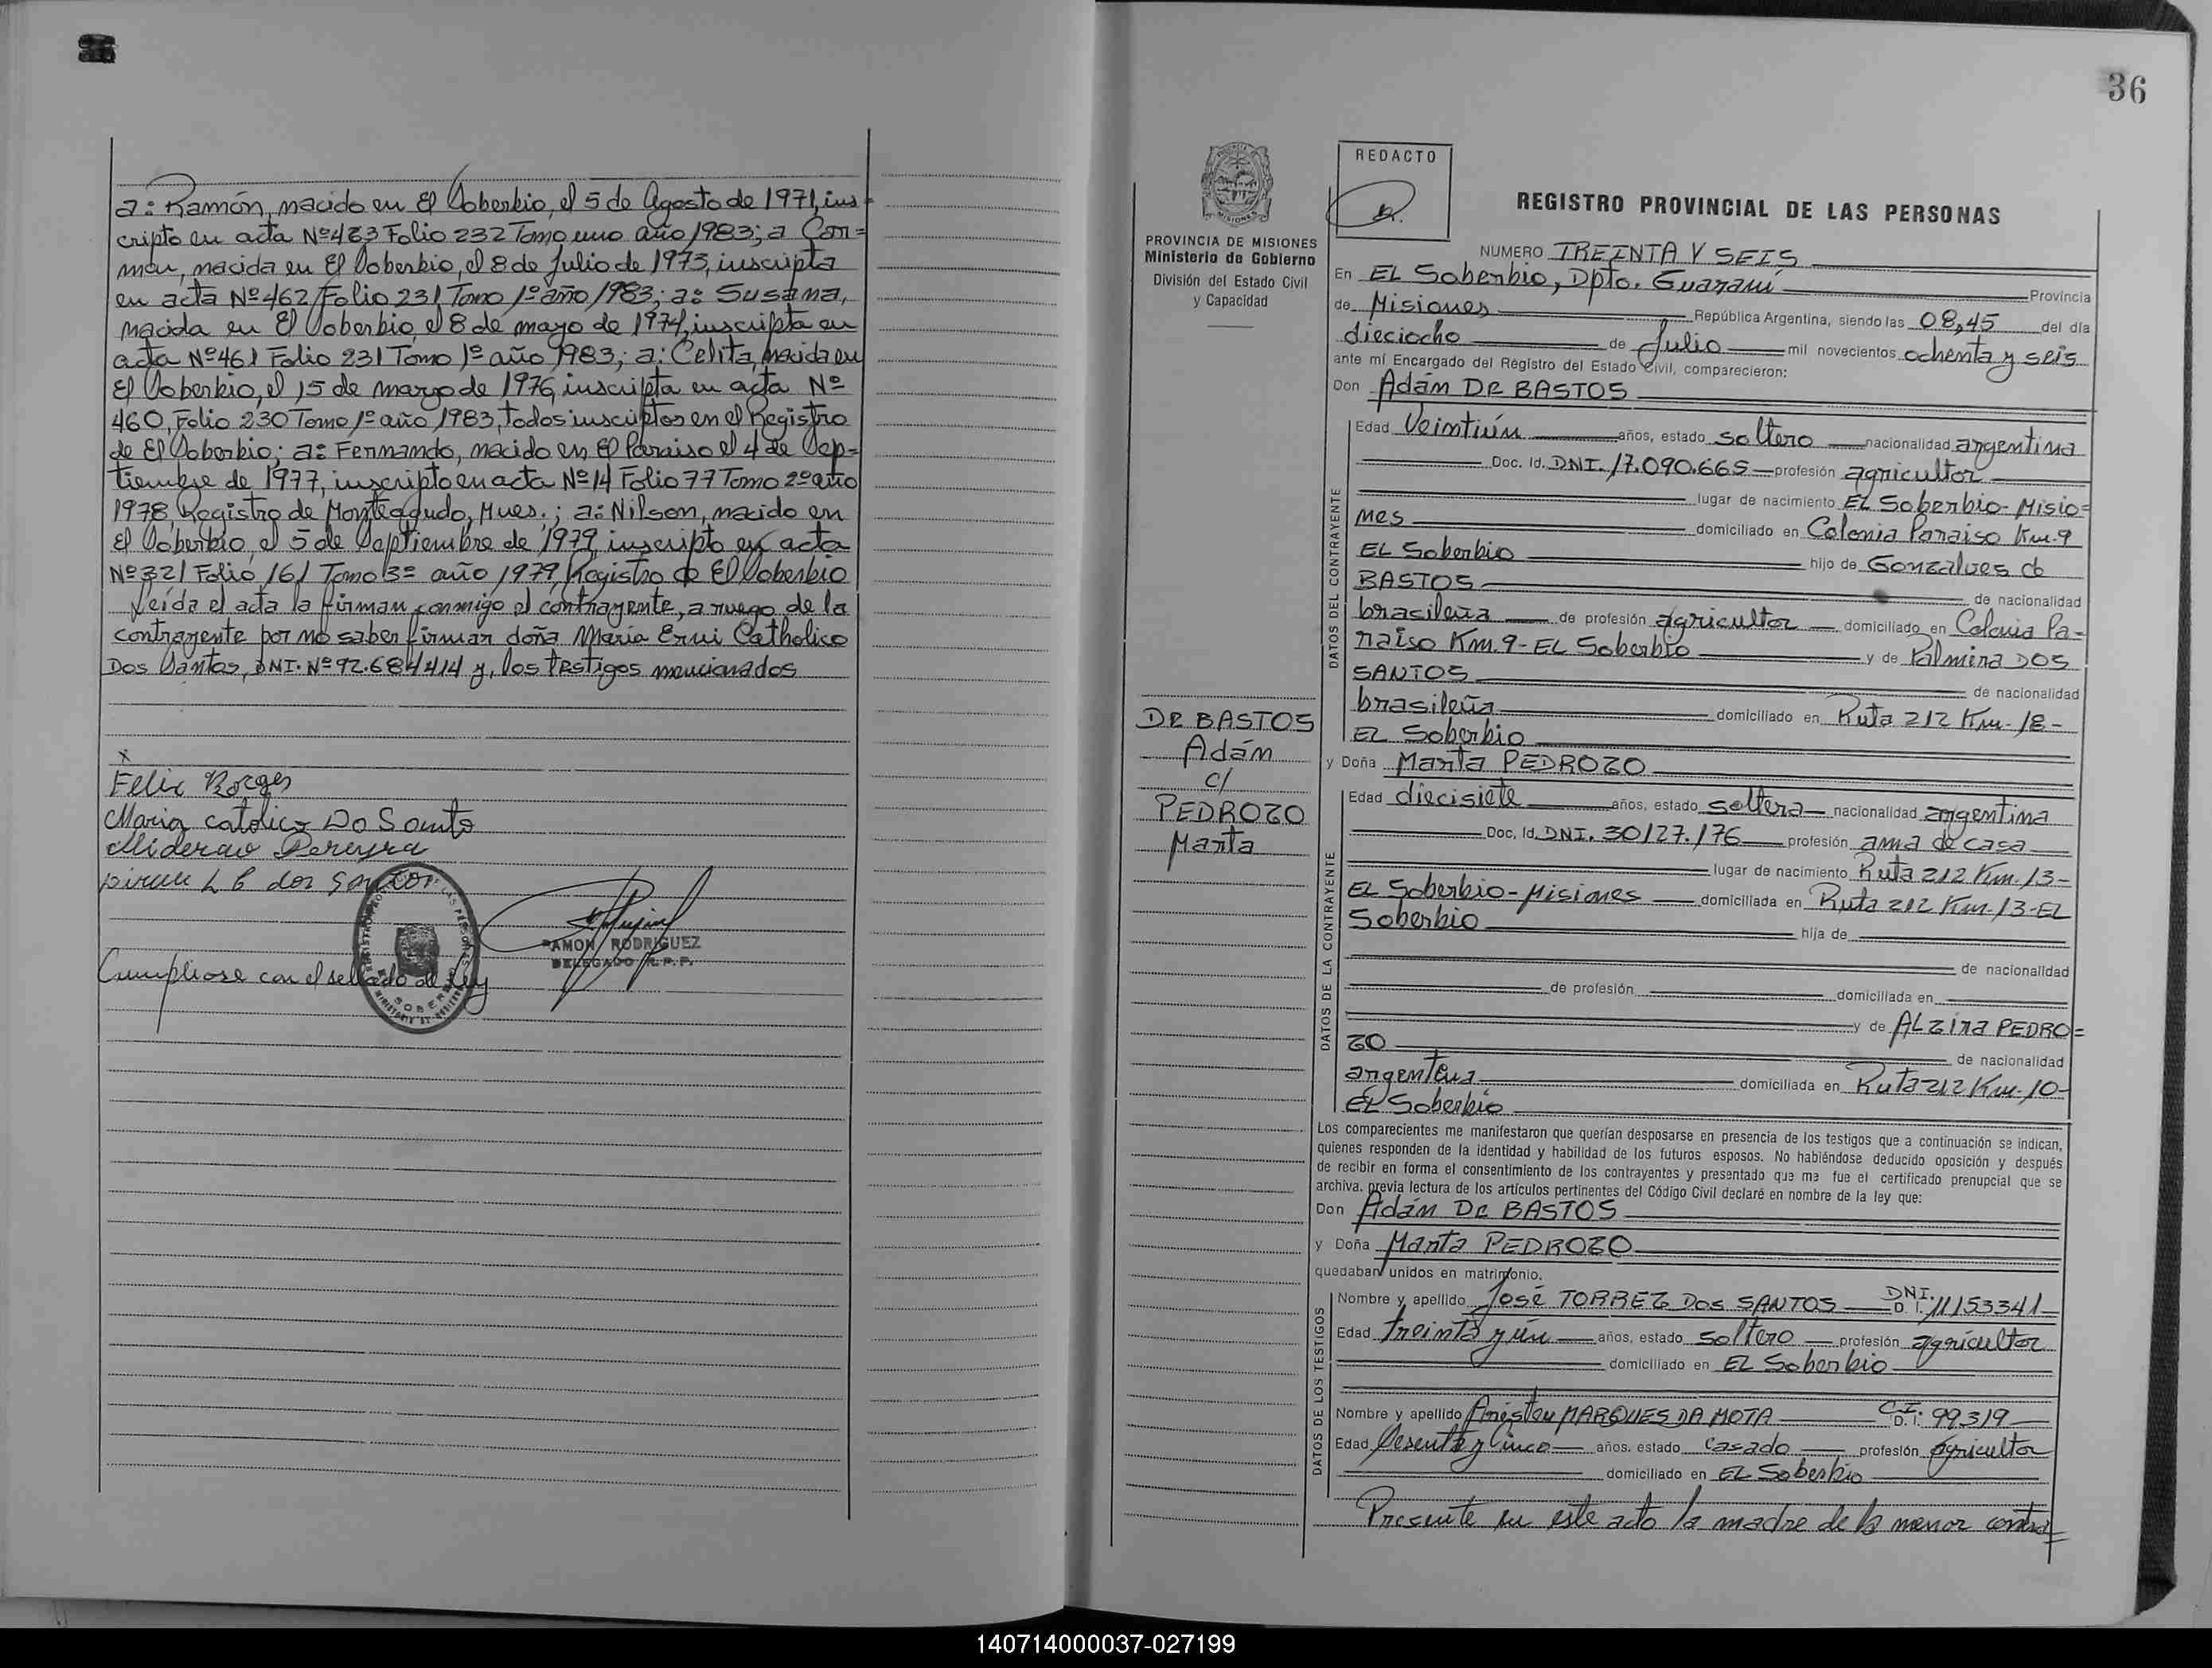 a: Ramón, nacido en El Soberbio, el 5 de Agosto de 1971, ins=
cripto en acta Nº463 Folio 232 Tomo uno año 1983; a Car=
men, nacida en El Soberbio, el 8 de Julio de 1973, inscripta
en acta Nº462 Folio 231 Tomo 1º año 1983; a: Susana,
nacida en El Soberbio, el 8 de mayo de 1974, inscripta en
acta Nº461 Folio 231 Tomo 1º año 1983; a: Celita, nacida en
El Soberbio, el 15 de marzo de 1976, inscripta en acta Nº
460, Folio 230 Tomo 1º año 1983, todos inscriptos en el Registro
de El Soberbio; a: Fernando, nacido en El Paraiso el 4 de Sep=
tiembre de 1977, inscripto en acta Nº14 Folio 77 Tomo 2º año
1978, Registro de Monteagudo, Mnes.; a: Nilson, nacido en
El Soberbio, el 5 de Septiembre de 1979, inscripto en acta
Nº321 Folio 161 Tomo 3º año 1979, Registro de El Soberbio
Leída el acta la firman conmigo el contrayente, a ruego de la
contrayente por no saber firmar doña Maria Erni Catholico
Dos Santos, DNI. Nº 92.684414 y, los testigos mencionados
x
Felix Borges
Maria catolico Do Santo
Pereyra
dos Santos
RAMON RODRIGUEZ
DELEGADO R.P.P.
Cumpliose con el sellado de Ley
36
REDACTO
PROVINCIA DE MISIONES
Ministerio de Gobierno
División del Estado Civil
y Capacidad
REGISTRO PROVINCIAL DE LAS PERSONAS
NUMERO TREINTA Y SEIS
En EL Soberbio, Dpto. Guaraní Provincia
de Misiones República Argentina, siendo las 08,45 del día
dieciocho de Julio mil novecientos ochenta y seis
ante mí Encargado del Registro del Estado Civil, comparecieron:
Don Adán DE BASTOS
DATOS DEL CONTRAYENTE
Edad Veintiún años, estado soltero nacionalidad argentina
Doc. Id. DNI. 17.090.665 profesión agricultor
lugar de nacimiento EL Soberbio-Misio=
nes domiciliado en Colonia Paraiso Km.9
EL Soberbio hijo de Gonzalves de
BASTOS de nacionalidad
brasilera de profesión agricultor domiciliado en Colonia Pa=
raiso Km.9-EL Soberbio y de Palmira DOS
SANTOS de nacionalidad
brasileña domiciliado en Ruta 212 Km-18-
EL Soberbio
DE BASTOS
Adán
c/
PEDROZO
Marta
y Doña Marta PEDROZO
DATOS DE LA CONTRAYENTE
Edad diecisiete años, estado soltera nacionalidad argentina
Doc. Id. DNI. 30127.176 profesión ama de casa
lugar de nacimiento Ruta 212 Km.13-
EL Soberbio-Misiones domiciliada en Ruta 212 Km.13-EL
Soberbio hija de
de nacionalidad
de profesión domiciliada en
y de ALzira PEDRO=
ZO de nacionalidad
argentina domiciliada en Ruta 212 Km-10-
EL Soberbio
Los comparecientes me manifestaron que querían desposarse en presencia de los testigos que a continuación se indican,
quienes responden de la identidad y habilidad de los futuros esposos. No habiéndose deducido oposición y después
de recibir en forma el consentimiento de los contrayentes y presentado que me fue el certificado prenupcial que se
archiva, previa lectura de los artículos pertinentes del Código Civil declaré en nombre de la ley que:
Don Adán DE BASTOS
y Doña Marta PEDROZO
quedaban unidos en matrimonio.
DATOS DE LOS TESTIGOS
Nombre y apellido José TORREZ DOS SANTOS DNI. D. I. 11153341
Edad treinta y ún años, estado soltero profesión agricultor
domiciliado en EL Soberbio
Nombre y apellido MARQUES DA MOTA C.I. D. I. 99319
Edad Sesenta y Cinco años, estado casado profesión agricultor
domiciliado en EL Soberbio
Presente en este acto la madre de la menor contra=
140714000037-027199